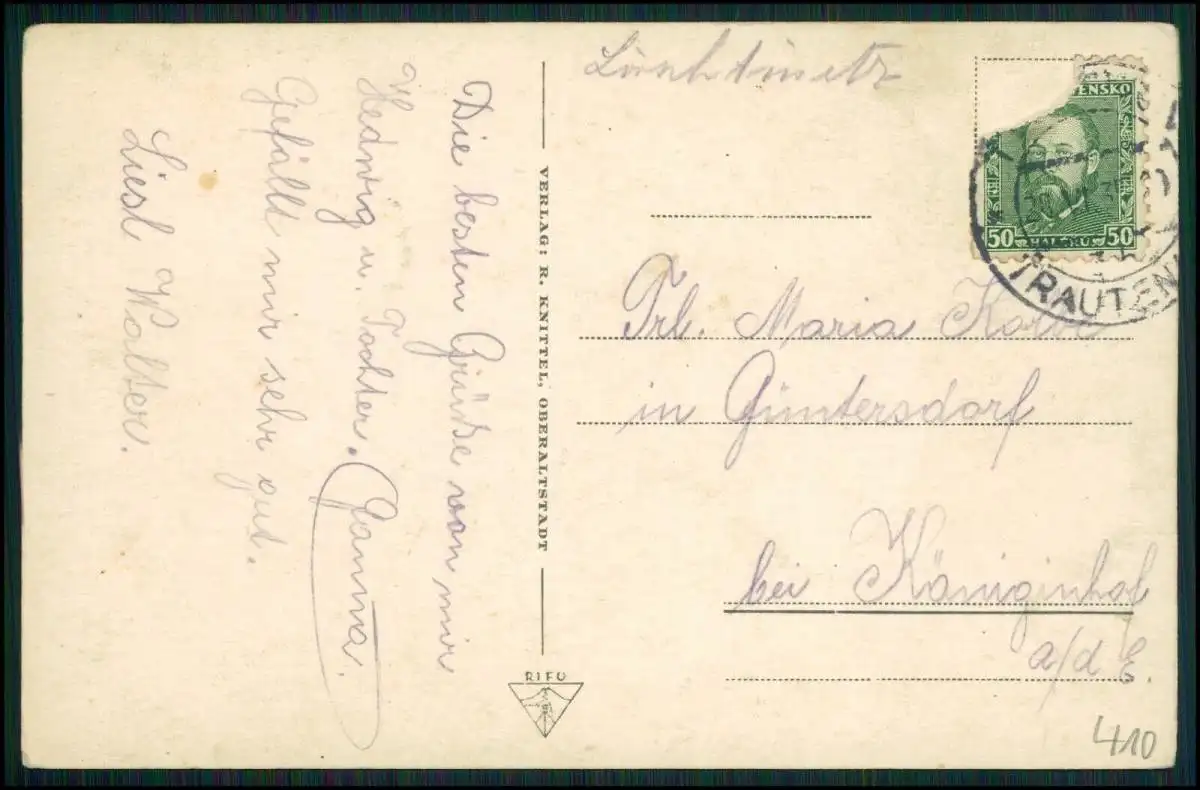 Die besten Grüße von mir
Hedwig u. Tochter. Hanna.
Gefällt mir sehr gut.
Liesl Walter.
VERLAG: R. KNITTEL, OBERALTSTADT
RIFO
ENSKO
50 HALERU 50
TRAUTEN
Frl. Maria
in Güntersdorf
bei Königinhof
a/d E.
410